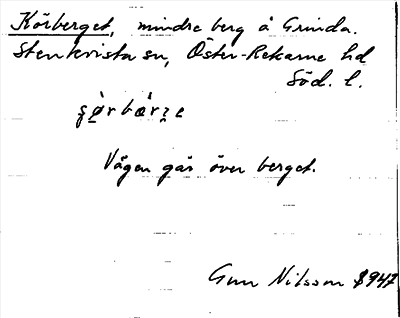 Körberget, mindre berg å Grinda.
Stenkvista sn, Öster-Rekarne hd
Söd. l.
Vägen går över berget.
Gun Nilsson 1947